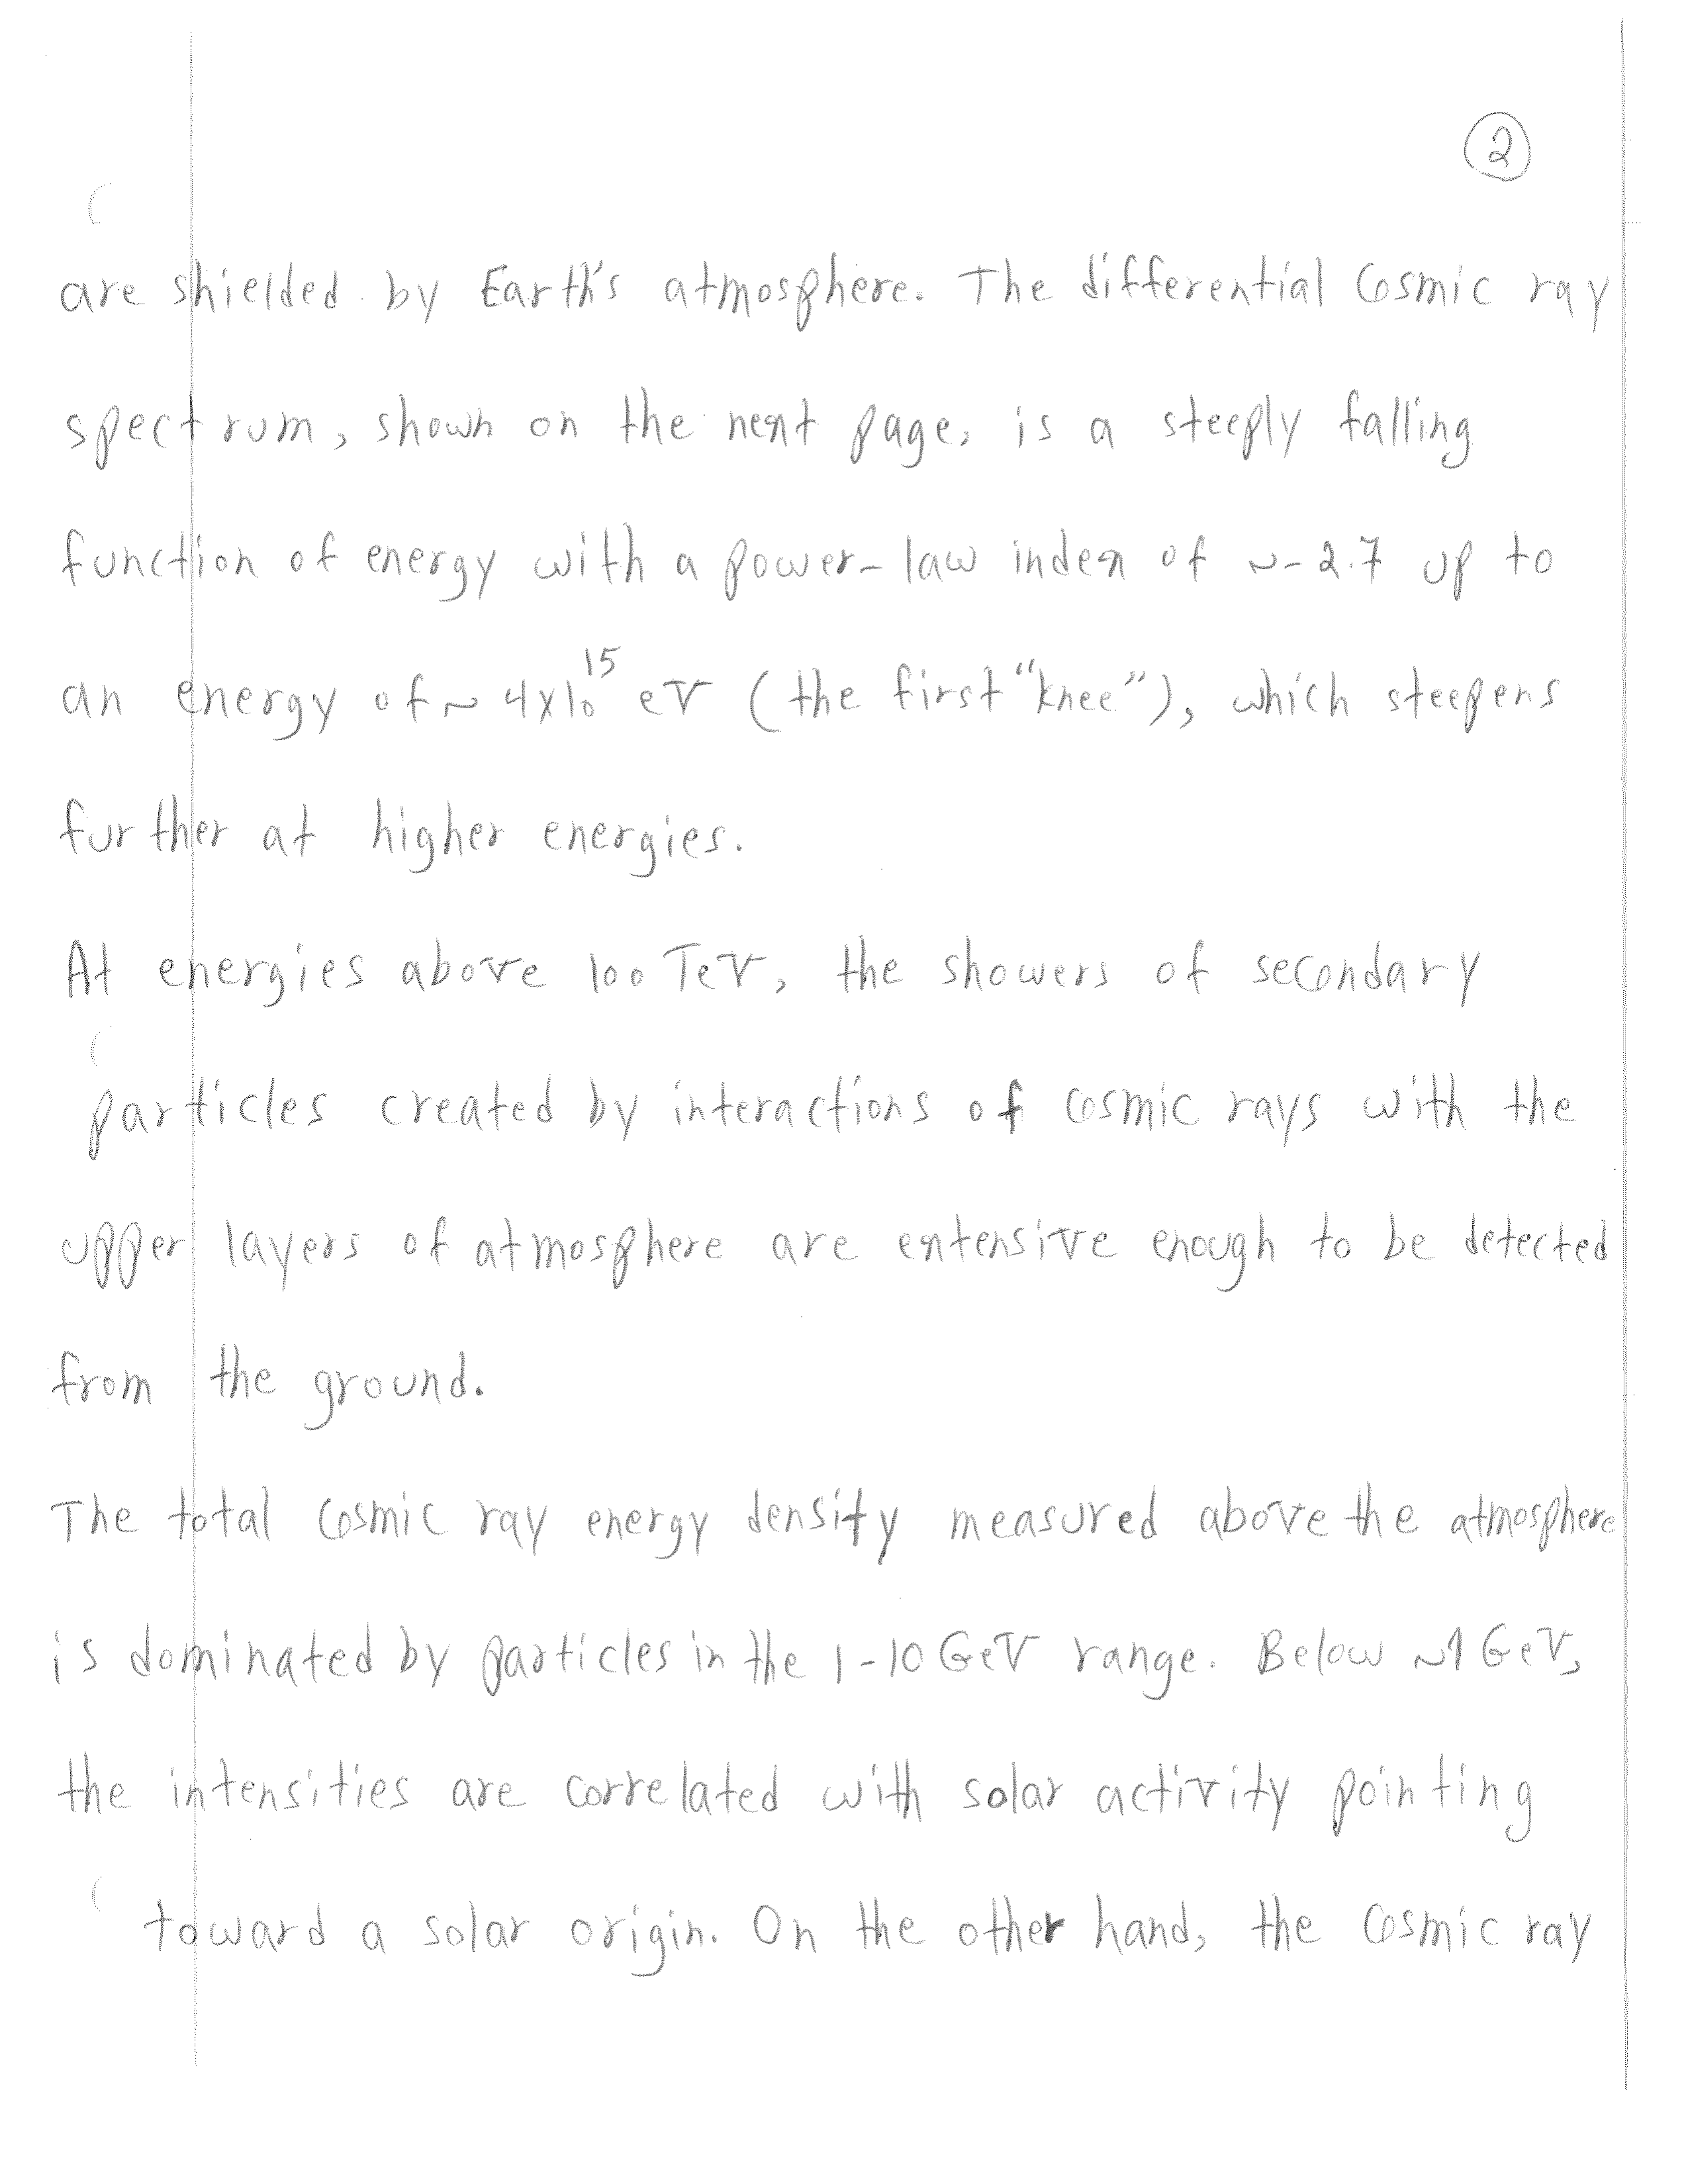 2
are shielded by Earth's atmosphere. The differential Cosmic ray
spectrum, shown on the next page, is a steeply falling
function of energy with a power-law index of ~-2.7 up to
an energy of ~ 4x10^15 eV (the first "knee"), which steepens
further at higher energies.
At energies above 100 TeV, the showers of secondary
particles created by interactions of cosmic rays with the
upper layers of atmosphere are extensive enough to be detected
from the ground.
The total cosmic ray energy density measured above the atmosphere
is dominated by particles in the 1-10 GeV range. Below ~1 GeV,
the intensities are correlated with solar activity pointing
toward a solar origin. On the other hand, the cosmic ray